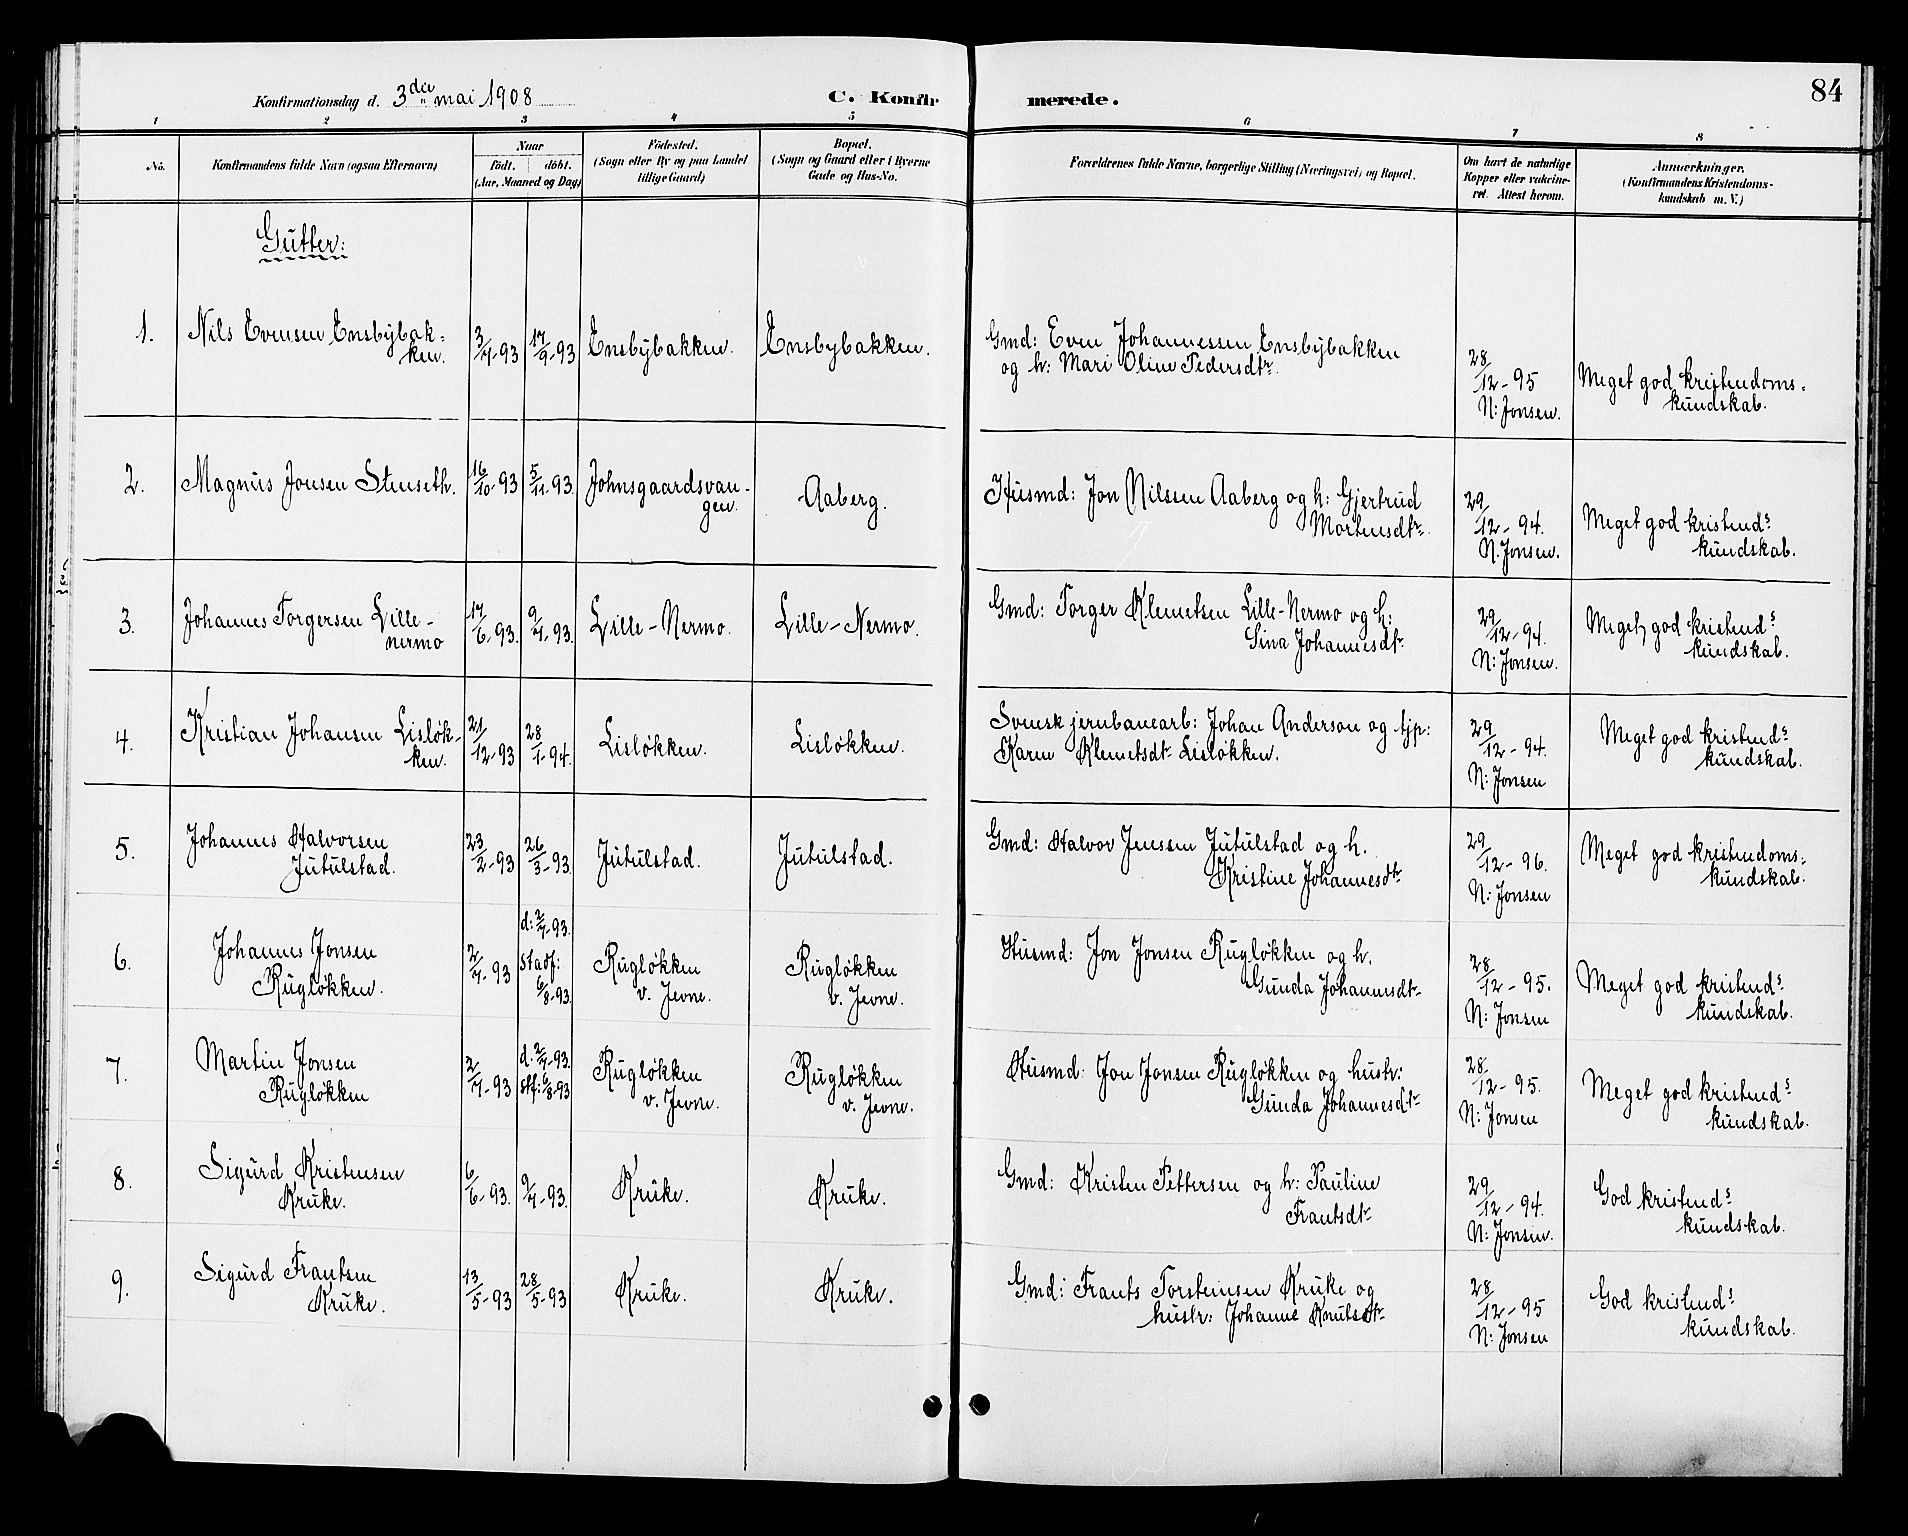 84
Konfirmationsdag d. 3die mai 1908
C. Konfirmerede.
1 2 3 4 5 6 7 8
No.
Konfirmandens fulde Navn (ogsaa Efternavn)
Naar
født. døbt.
(Aar, Maaned og Dag)
Fødested.
(Sogn eller By og paa Landet
tillige Gaard)
Bopæl.
(Sogn og Gaard eller i Byerne
Gade og Hus-No.
Forældrenes fulde Navne, borgerlige Stilling (Næringsvei) og Bopæl.
Om havt de naturlige
Kopper eller vakcine-
ret. Attest herom.
Anmærkninger.
(Konfirmandens Kristendoms-
kundskab m. V.)
Gutter:
1. Nils Evensen Ensbybak-
ken. 3/7-93 17/9-93 Ensbybakken. Ensbybakken. Gmd: Even Johannessen Ensbybakken
og h: Mari Oline Pedersdtr. 28/12-95
N: Jonsen. Meget god kristendoms-
kundskab.
2. Magnus Jonsen Stenseth. 16/10-93 5/11-93. Johnsgaardsvan-
gen. Aaberg. Husmd: Jon Nilssen Aaberg og h: Gjertrud
Mortensdtr. 29/12-94.
N. Jonsen. Meget god kristends
kundskab.
3. Johannes Torgersen Lille-
nermo 17/6-93. 9/7-93. Lille-Nermo. Lille-Nermo. Gmd: Torger Klemetsen Lille-Nermo og h:
Sina Johannesdtr 29/12-94.
N: Jonsen. Meget god kristends
kundskab.
4. Kristian Johansen Lisløk-
ken. 21/12-93 28/1-94. Lisløkken. Lisløkken. Svensk jernbanearb: Johan Anderson og tjp:
Karen Klemetsdtr Lisløkken. 29/12-94.
N: Jonsen Meget god kristends
kundskab.
5. Johannes Halvorsen
Jutulstad. 23/2-93 26/3-93. Jutulstad. Jutulstad. Gmd: Halvor Jenssen Jutulstad og h.
Kristine Johannesdtr 29/12-96.
N: Jonsen Meget god kristendoms-
kundskab.
6. Johannes Jonsen
Rugløkken. 2/7-93 d: 2/7-93.
Stadf:
6/8-93. Rugløkken
v. Jevne. Rugløkken
v. Jevne. Husmd: Jon Jonsen Rugløkken og h.
Gunda Johannesdtr 28/12-95.
N: Jonsen Meget god kristends
kundskab.
7. Martin Jonsen
Rugløkken 2/7-93 d: 2/7-93.
stf: 6/8-93 Rugløkken
v. Jevne. Rugløkken
v. Jevne. Husmd: Jon Jonsen Rugløkken og hustr:
Gunda Johannesdtr 28/12-95.
N: Jonsen Meget god kristends
kundskab.
8. Sigurd Kristensen
Kruke. 6/6-93. 9/7-93. Kruke. Kruke. Gmd: Kristen Pettersen og h: Pauline
Frantsdtr 29/12-94.
N: Jonsen. God kristends
kundskab.
9. Sigurd Frantsen
Kruke. 13/5-93 28/5-93 Kruke. Kruke. Gmd: Frants Torsteinsen Kruke og
hustr: Johanne Knutsdtr 28/12-95
N: Jonsen God kristends
kundskab.